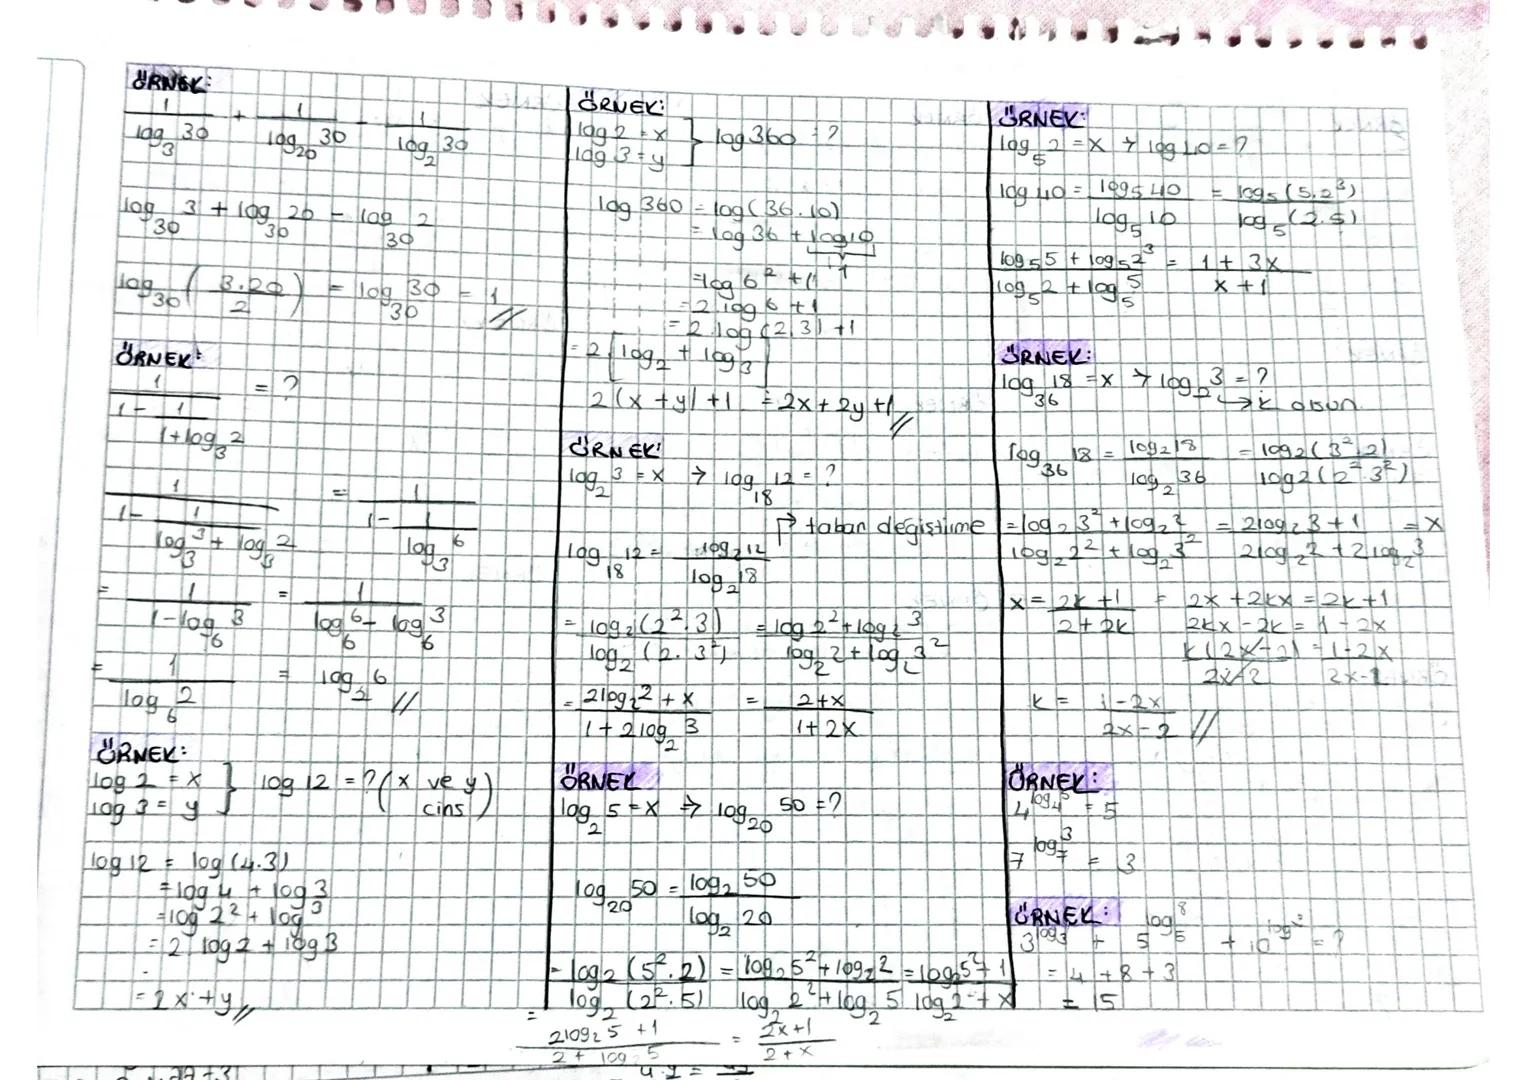 ÖRNEK:
1/log₃30 + 1/log₂₀30 - 1/log₂30
log₃₀3 + log₃₀20 - log₃₀2
log₃₀(3.20/2) = log₃₀30 = 1 //
ÖRNEK:
1/(1 - 1/(1+log₃2)) = ?
1/(1 - 1/(log₃3 + log₃2)) = 1/(1 - 1/log₃6)
= 1/(1-log₆3) = 1/(log₆6 - log₆3)
= 1/log₆2 = log₂6 //
ÖRNEK:
log 2 = x
log 3 = y } log 12 = ? (x ve y cins)
log 12 = log (4.3)
= log 4 + log 3
= log 2² + log 3
= 2 log 2 + log 3
= 2x + y //
ÖRNEK:
log 2 = x
log 3 = y } log 360 = ?
log 360 = log(36.10)
= log 36 + log 10
1
= log 6² + 1
= 2 log 6 + 1
= 2 log (2.3) + 1
= 2 [log₂ + log₃]
2(x + y) + 1 = 2x + 2y + 1 //
ÖRNEK:
log₂3 = x → log₁₈12 = ?
→ taban değiştirme
log₁₈12 = log₂12/log₂18
= log₂(2².3)/log₂(2.3²) = (log₂2² + log₂3)/(log₂2 + log₂3²)
= (2log₂2 + x)/(1 + 2log₂3) = (2+x)/(1+2x)
ÖRNEK
log₂5 = x ⇒ log₂₀50 = ?
log₂₀50 = log₂50/log₂20
= log₂(5².2)/log₂(2².5) = (log₂5² + log₂2)/(log₂2² + log₂5) = (log₂5² + 1)/(log₂2² + x)
= (2log₂5 + 1)/(2 + log₂5) = (2x+1)/(2+x)
ÖRNEK:
log₅2 = x → log 40 = ?
log 40 = log₅40/log₅10 = log₅(5.2³)/log₅(2.5)
(log₅5 + log₅2³)/(log₅2 + log₅5) = (1+3x)/(x+1)
ÖRNEK:
log₃₆18 = x → log₂3 = ?
→ k olsun
log₃₆18 = log₂18/log₂36 = log₂(3².2)/log₂(2².3²)
= (log₂3² + log₂2)/(log₂2² + log₂3²) = (2log₂3 + 1)/(2log₂2 + 2log₂3) = x
x = (2k+1)/(2+2k) = 2x + 2kx = 2k+1
2kx - 2k = 1 - 2x
k(2x-2)/(2x-2) = (1-2x)/(2x-2)
k = (1-2x)/(2x-2) //
ÖRNEK:
4^(log₄5) = 5
7^(log₇3) = 3
ÖRNEK:
3^(log₃) + 5^(log₅8) + 10^(log) = ?
= 4 + 8 + 3
= 15